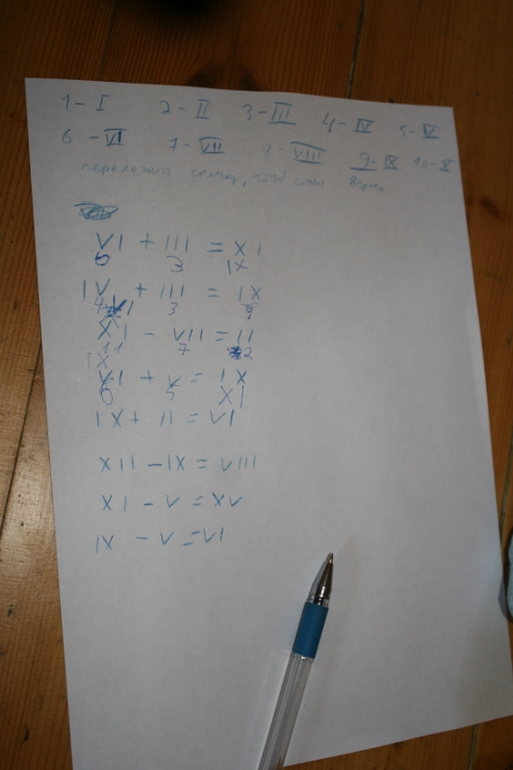 1 - I 2 - II 3 - III 4 - IV 5 - V
6 - VI 7 - VII 8 - VIII 9 - IX 10 - X
переложить спичку, чтоб стало верно
VI + III = XI
6 3 IX
IV + III = IX
4 3 9
XI - VII = II
11 7 2
IX
VI + V = IX
6 5 XI
IX + II = VI
XII - IX = VIII
XI - V = XV
IX - V = VI